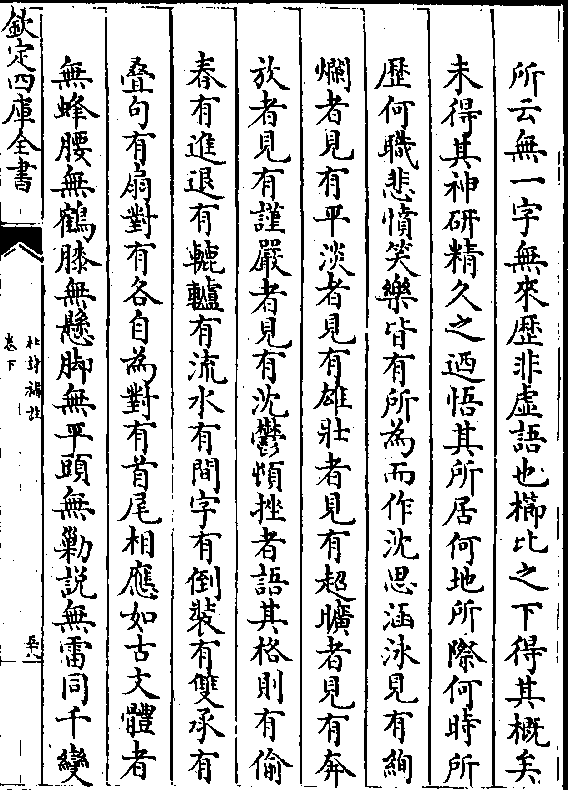 所云無一字無來歷非虛語也櫛比之下得其概矣
未得其神研精久之迺悟其所居何地所際何時所
歷何職悲憤笑樂皆有所為而作沈思涵泳見有絢
爛者見有平淡者見有雄壯者見有超曠者見有奔
放者見有謹嚴者見有沈鬱頓挫者語其格則有偷
春有進退有轆轤有流水有間字有倒裝有雙承有
疊句有扇對有各自為對有首尾相應如古文體者
無蜂腰無鶴膝無懸脚無平頭無勦説無雷同千變
欽定四庫全書
杜詩攟
卷下